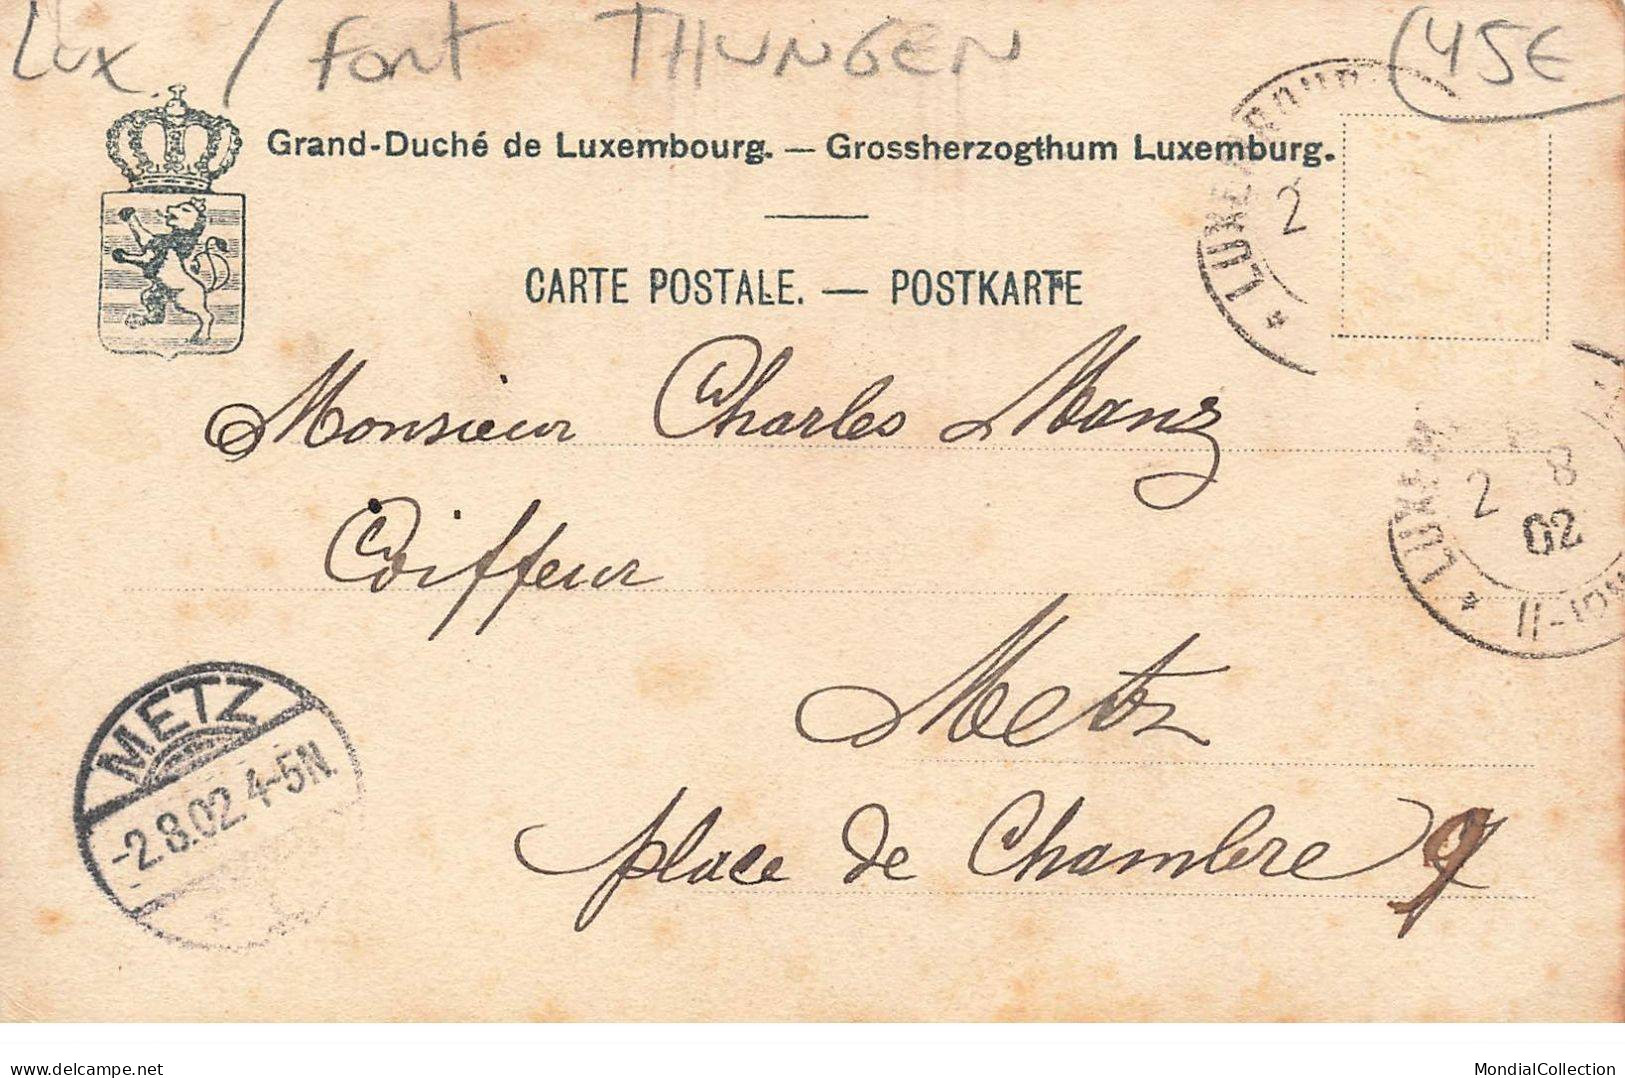 Lux / Font THUNGEN 45€
Grand-Duché de Luxembourg. — Grossherzogthum Luxemburg.
CARTE POSTALE. — POSTKARTE
* LUXEMBOURG
2
Monsieur Charles Manz
* LUXEM
2 8
02
Coiffeur
Metz
METZ
-2.8.02.4-5N.
place de Chambre 9
delcampe.net
MondialCollection